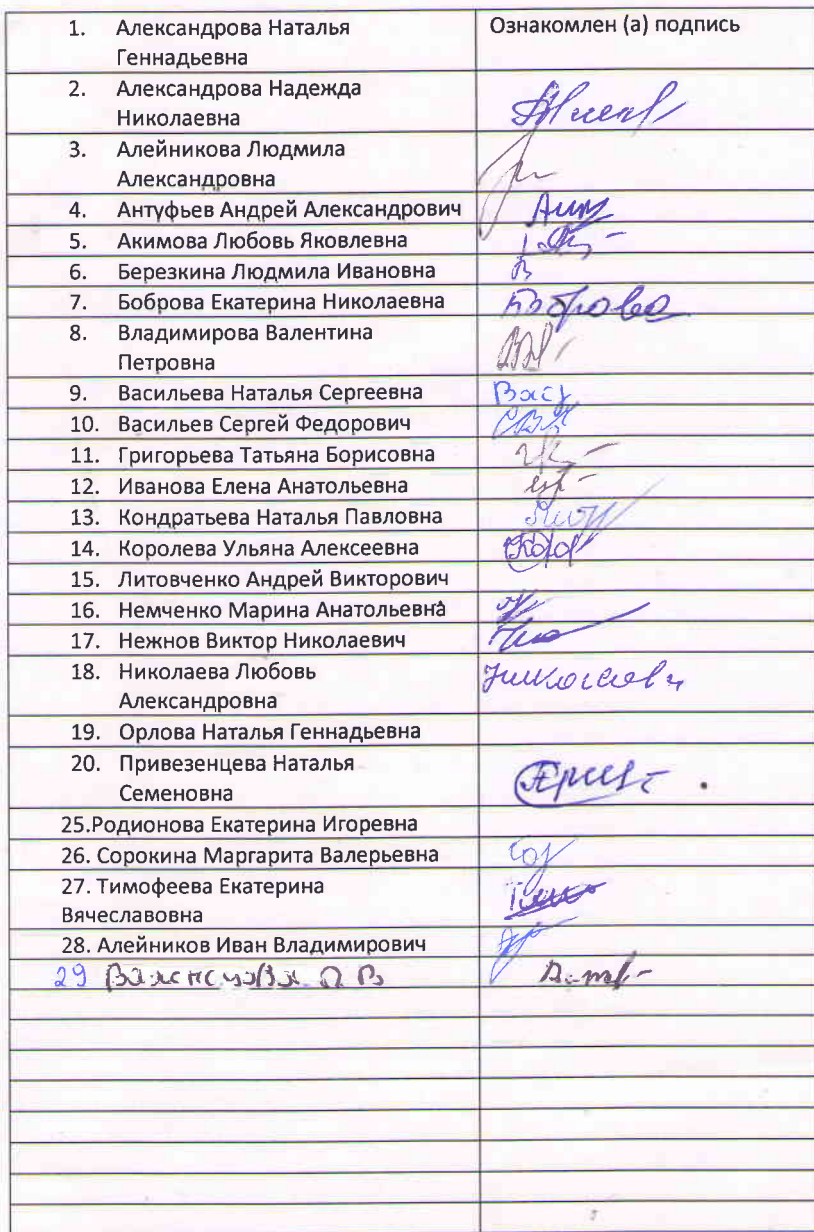 1. Александрова Наталья Ознакомлен (а) подпись
Геннадьевна
2. Александрова Надежда
Николаевна
3. Алейникова Людмила
Александровна
4. Антуфьев Андрей Александрович
5. Акимова Любовь Яковлевна
6. Березкина Людмила Ивановна
7. Боброва Екатерина Николаевна Боброва
8. Владимирова Валентина
Петровна
9. Васильева Наталья Сергеевна Вас
10. Васильев Сергей Федорович
11. Григорьева Татьяна Борисовна
12. Иванова Елена Анатольевна
13. Кондратьева Наталья Павловна
14. Королева Ульяна Алексеевна
15. Литовченко Андрей Викторович
16. Немченко Марина Анатольевна
17. Нежнов Виктор Николаевич
18. Николаева Любовь Николаева
Александровна
19. Орлова Наталья Геннадьевна
20. Привезенцева Наталья
Семеновна
25.Родионова Екатерина Игоревна
26. Сорокина Маргарита Валерьевна
27. Тимофеева Екатерина
Вячеславовна
28. Алейников Иван Владимирович
29